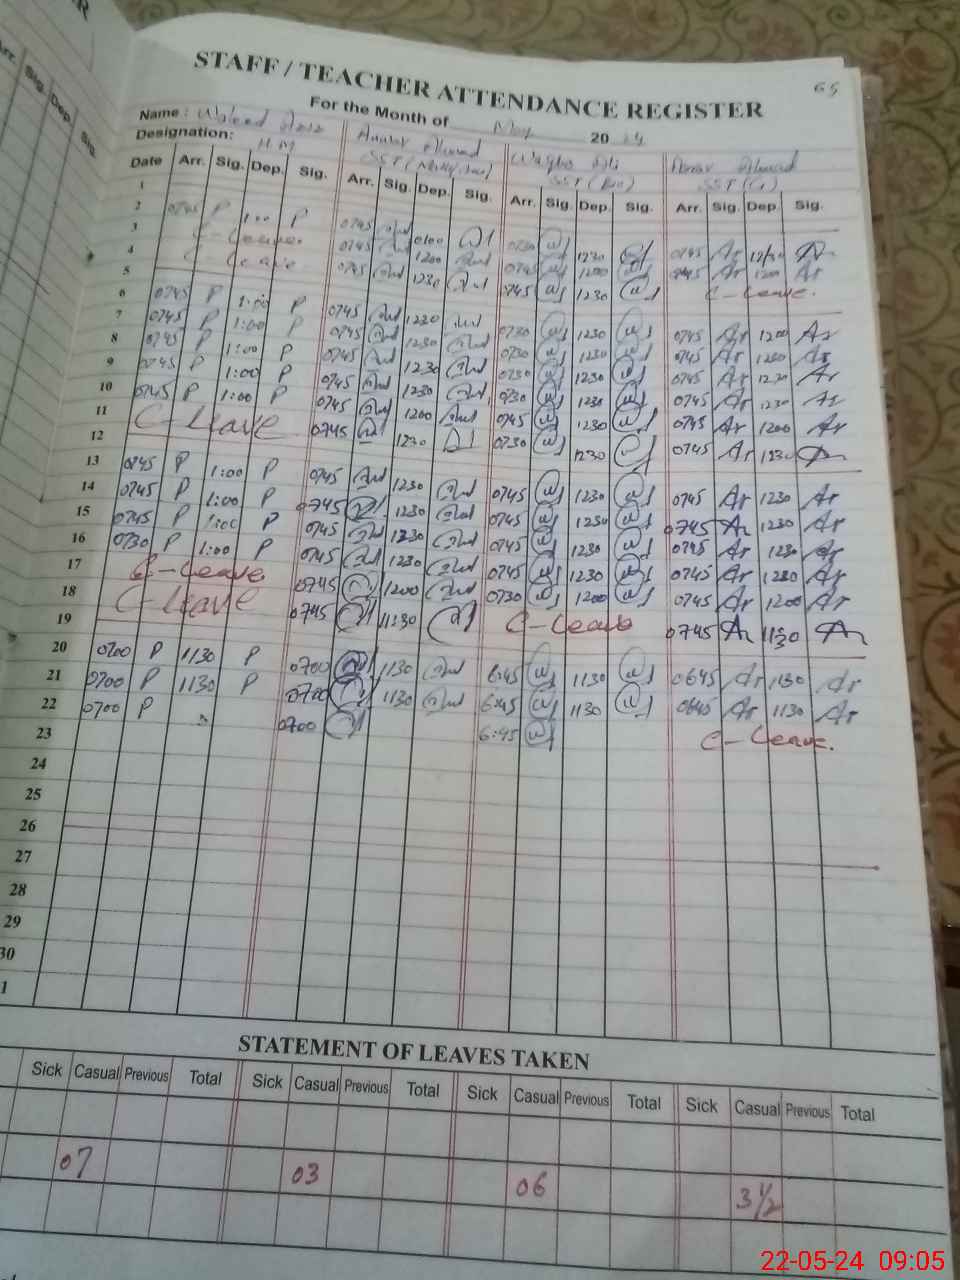 STAFF / TEACHER ATTENDANCE REGISTER
65
For the Month of May 2024
Name : Waleed Aziz
Designation: H.M
SST (Bio)
SST (G)
Date Arr. Sig. Dep. Sig. Arr. Sig. Dep. Sig. Arr. Sig. Dep. Sig. Arr. Sig. Dep. Sig.
1
2 0745 P 1:00 P 0745 0730 1230 0745 Ar
3 C-Leave 0745 1200 0745 1200 0745 Ar 1200 Ar
4 C-Leave 0745 1230 0745 1230 C-Leave.
5
6 0745 P 1:00 P 0745 1230 0730 1230 0745 Ar 1200 Ar
7 0745 P 1:00 P 0745 1230 0730 1230 0745 Ar Ar
8 0745 P 1:00 P 0745 1230 0730 1230 0745 Ar 1230 Ar
9 0745 P 1:00 P 0745 1230 0730 1230 0745 Ar 1230 Ar
10 0745 P 1:00 P 0745 1200 0745 1230 0745 Ar 1200 Ar
11 C-Leave 0745 1230 0730 1230 0745 Ar 1230
12
13 0745 P 1:00 P 0745 1230 0745 1230 0745 Ar 1230 Ar
14 0745 P 1:00 P 0745 1230 0745 1230 0745 Ar 1230 Ar
15 0745 P 1:00 P 0745 1230 0745 1230 0745 Ar 1230 Ar
16 0730 P 1:00 P 0745 1230 0745 1230 0745 Ar 1230 Ar
17 C-Leave 0745 1200 0730 1200 0745 Ar 1200 Ar
18 C-Leave 0745 1130 C-Leave 0745 Ar 1130
19
20 0700 P 1130 P 0700 1130 6:45 1130 0645 Ar 1130 Ar
21 0700 P 1130 P 0700 1130 6:45 1130 0645 Ar 1130 Ar
22 0700 P 0700 6:45 C-Leave.
23
24
25
26
27
28
29
30
1
STATEMENT OF LEAVES TAKEN
Sick Casual Previous Total Sick Casual Previous Total Sick Casual Previous Total Sick Casual Previous Total
07 03 06 3 1/2
22-05-24 09:05
Arr. Sig. Dep. Sig.